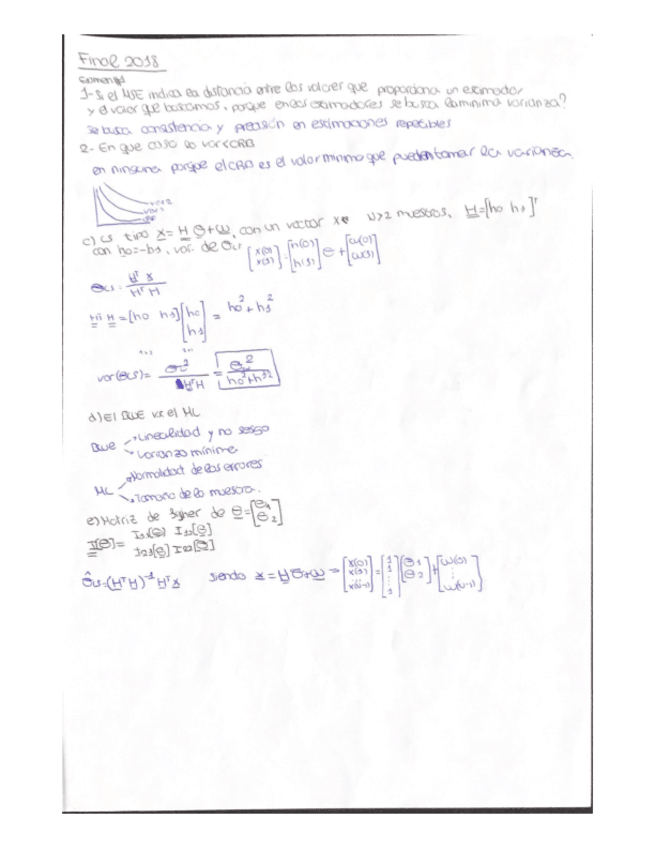 Final 2018
1- Si el MSE indica la distancia entre los valores que proporciona un estimador
y el valor que buscamos, porque en los estimadores se busca la mínima varianza?
se busca consistencia y precisión en estimaciones repetibles
2- En que caso la var<CRB
en ninguna porque el CRB es el valor minimo que pueden tomar la varianza.
c) LS tipo x = H θ + w, con un vector x N>2 muestras, H=[h0 h1]ᵀ
con h0=-h1, var. de θLS [x(0) x(1)] = [h(0) h(1)] θ + [w(0) w(1)]
θLS = Hᵀ x / Hᵀ H
Hᵀ H = [h0 h1] [h0 h1] = h0² + h1²
var(θLS) = σ² / HᵀH = σ² / h0²+h1²
d) El BLUE vs el ML
Linealidad y no sesgo
BLUE
Varianza mínima
Normalidad de los errores
ML
Tamaño de la muestra.
e) Matriz de Fisher de θ = [θ1 θ2]
I(θ) = I11[θ] I12[θ]
I21[θ] I22[θ]
θ̂LS = (HᵀH)⁻¹ Hᵀx siendo x = Hθ+w = [x(0) x(1) ... x(N-1)] = [1 1 ⋮ 1] [θ1 θ2] + [w(0) ⋮ w(N-1)]